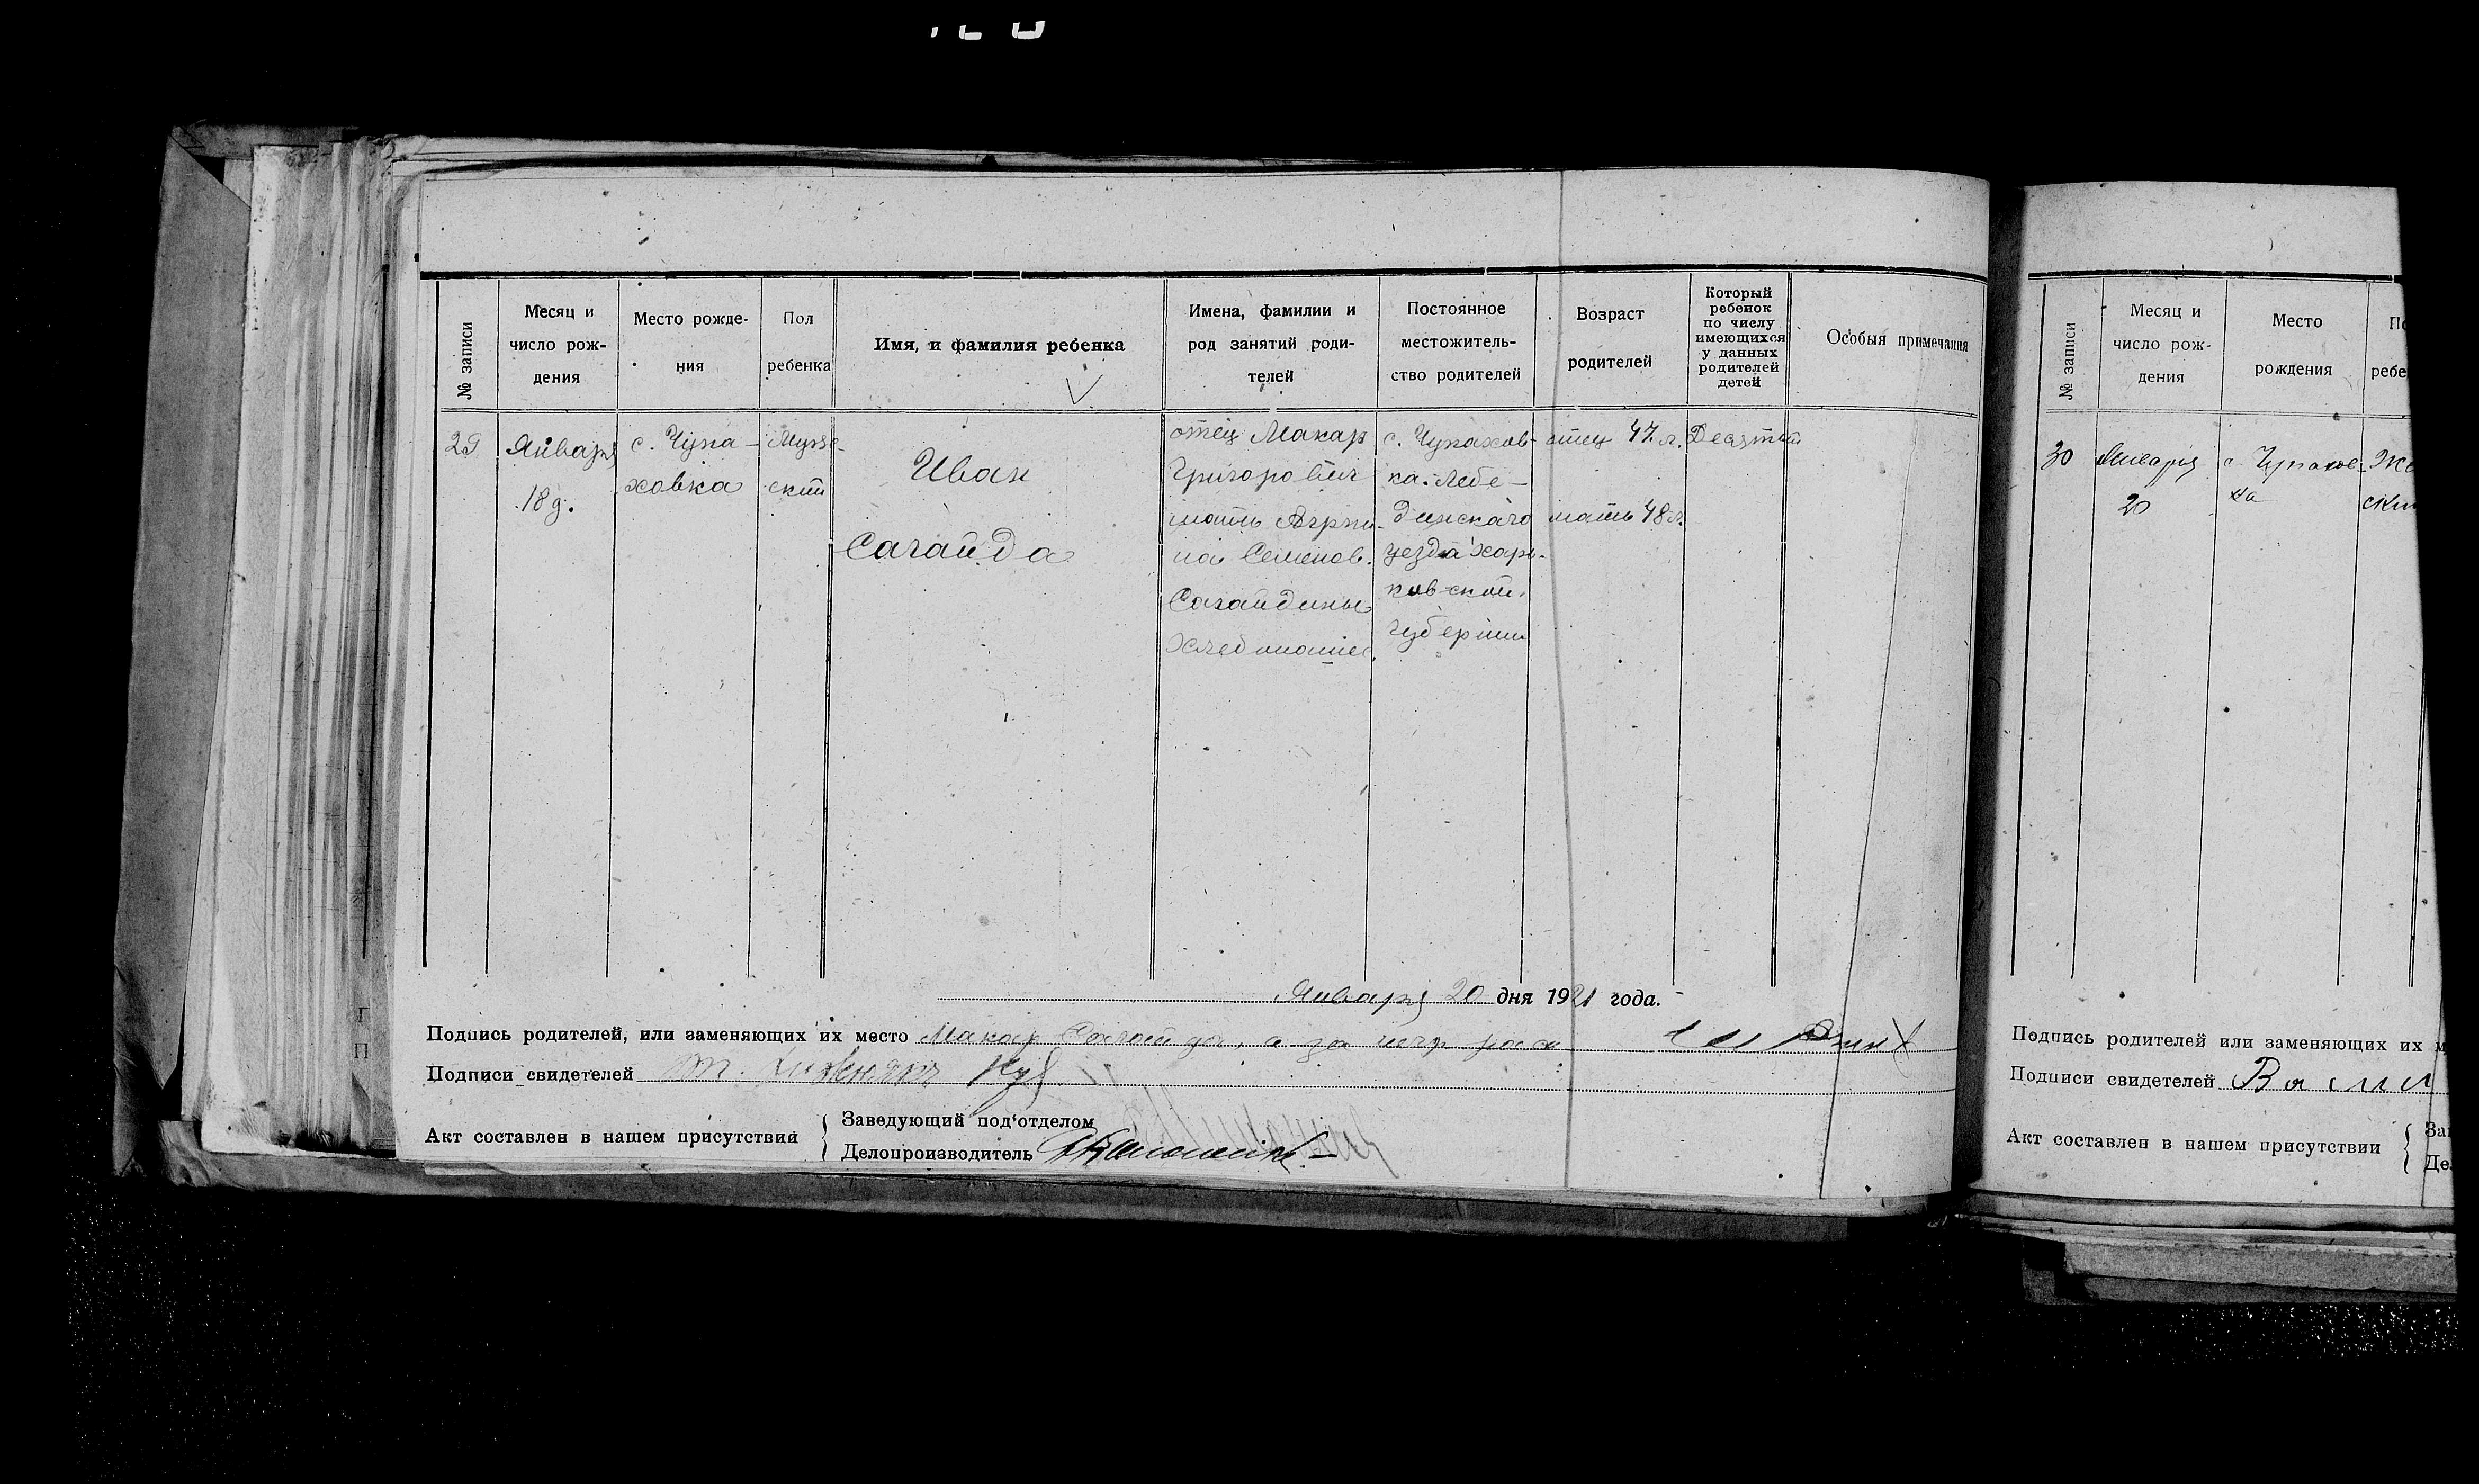 № записи
Месяц и
число рож-
дения
Место рожде-
ния
Пол
ребенка
Имя, и фамилия ребенка
Имена, фамилии и
род занятий роди-
телей
Постоянное
местожитель-
ство родителей
Возраст
родителей
Который
ребенок
по числу
имеющихся
у данных
родителей
детей
Особыя примечания
29
Января
18 д.
с. Чупа-
ховка
Муже-
ский
Иван
Сагайда
отец Макар
Григорович
мать Агрпи-
на Семенов.
Сагайдины
с. Чупахов-
ка. Лебе-
динскаго
уезда Харь-
ковской
губернии
отец 47 л.
мать 48 л.
Десятый
Января 20 дня 1921 года.
Подпись родителей, или заменяющих их место Макар Сагайда, а за
Подписи свидетелей
Акт составлен в нашем присутствии
Заведующий под'отделом
Делопроизводитель
№ записи
Месяц и
число рож-
дения
Место
рождения
По
ребе
30
Января
20
с. Чупахов-
ка
Же
ски
Подпись родителей или заменяющих их м
Подписи свидетелей Васил
Акт составлен в нашем присутствии
Зав
Де